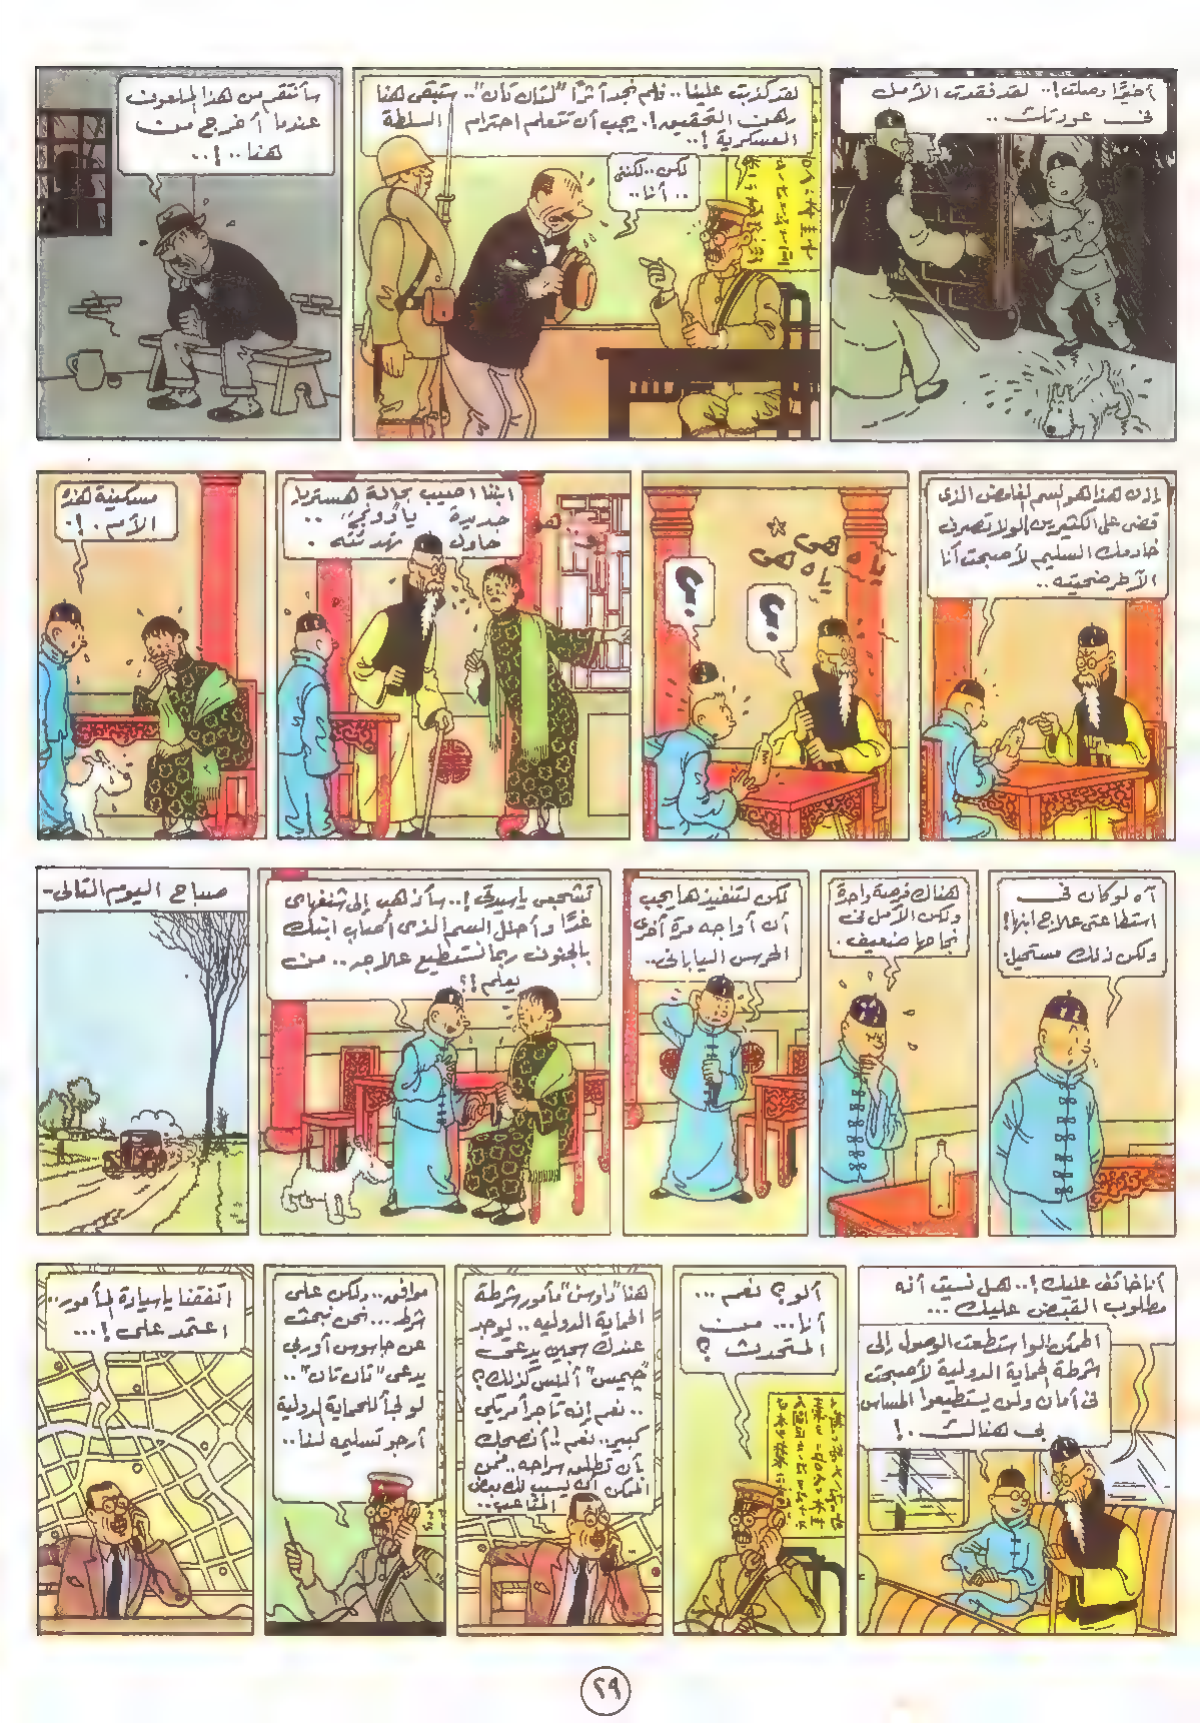 أخيرًا وصلت !.. لقد فقدت الأمل
فى عودتك ..
لقد كذبت علينا .. فلم نجد أثرًا "لتان تان" .. ستبقى هنا
رهن التحقيق !. يجب أن تتعلم احترام السلطة
العسكرية !..
لكن .. لكننى
.. أنا ..
سأنتقم من هذا الملعون
عندما أخرج من
هنا .. !..
إذن هذا هو السم الغامض الذى
قضى على الكثيرين ! لولا تصرف
خادمك السليم لأصبحت أنا
الآخر ضحيته ..
ياه هى
ياه هى
؟
؟
ابننا أصيب بحالة هستريا
جديدة يا "وونج" ..
حاول تهدئته .
مسكينة هذه
الأم . !.
آه لو كان فى
استطاعتى علاج ابنها !
ولكن ذلك مستحيل .
هناك فرصة واحدة
ولكن الأمل فى
نجاحها ضعيف .
لكن لتنفيذها يجب
أن أواجه مرة أخرى
الحرس اليابانى ..
تشجعى يا سيدتى !.. سأذهب إلى شنغهاى
غدًا وأحلل السم الذى أصاب ابنك
بالجنون ربما نستطيع علاجه .. من
يعلم !؟
صباح اليوم التالى -
أنا خائف عليك !.. هل نسيت أنه
مطلوب القبض عليك ...
اطمئن ! لو استطعت الوصول إلى
شرطة الحماية الدولية لأصبحت
فى أمان ولن يستطيعوا المساس
بى هناك . !
ألو ؟ نعم ...
أنا ... من
المتحدث ؟
هنا "داوسن" مأمور شرطة
الحماية الدوليه .. يوجد
عندك سجين يدعى
"جيبس" أليس كذلك ؟
.. نعم إنه تاجر أمريكى
كبير .. نعم !. أنصحك
بأن تطلق سراحه .. فمن
الممكن أن يسبب لك بعض
المتاعب ..
موافق .. ولكن على
شرط ... نحن نبحث
عن جاسوس أوربى
يدعى "تان تان" ..
لو لجأ للحماية الدولية
أرجو تسليمه لنا ..
اتفقنا يا سيادة المأمور ..
اعتمد على !...
٢٩